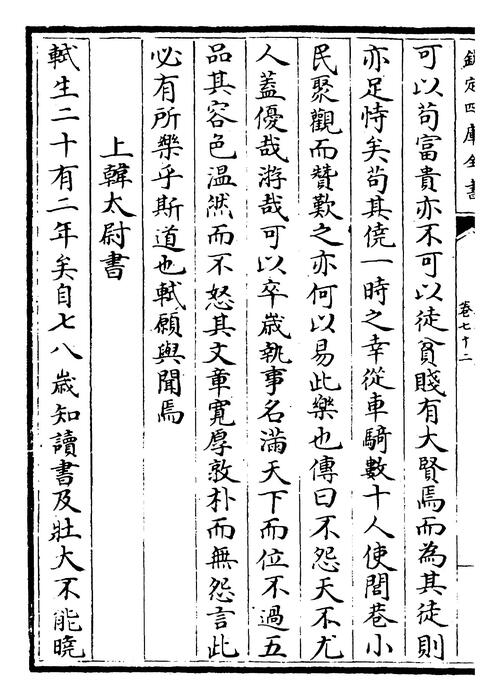 欽定四庫全書
卷七十二
可以苟富貴亦不可以徒貧賤有大賢焉而為其徒則
亦足恃矣苟其僥一時之幸從車騎數十人使閭巷小
民聚觀而贊歎之亦何以易此樂也傳曰不怨天不尤
人蓋優哉游哉可以卒歲執事名滿天下而位不過五
品其容色温然而不怒其文章寛厚敦朴而無怨言此
必有所樂乎斯道也軾願與聞焉
上韓太尉書
軾生二十有二年矣自七八歲知讀書及壯大不能曉